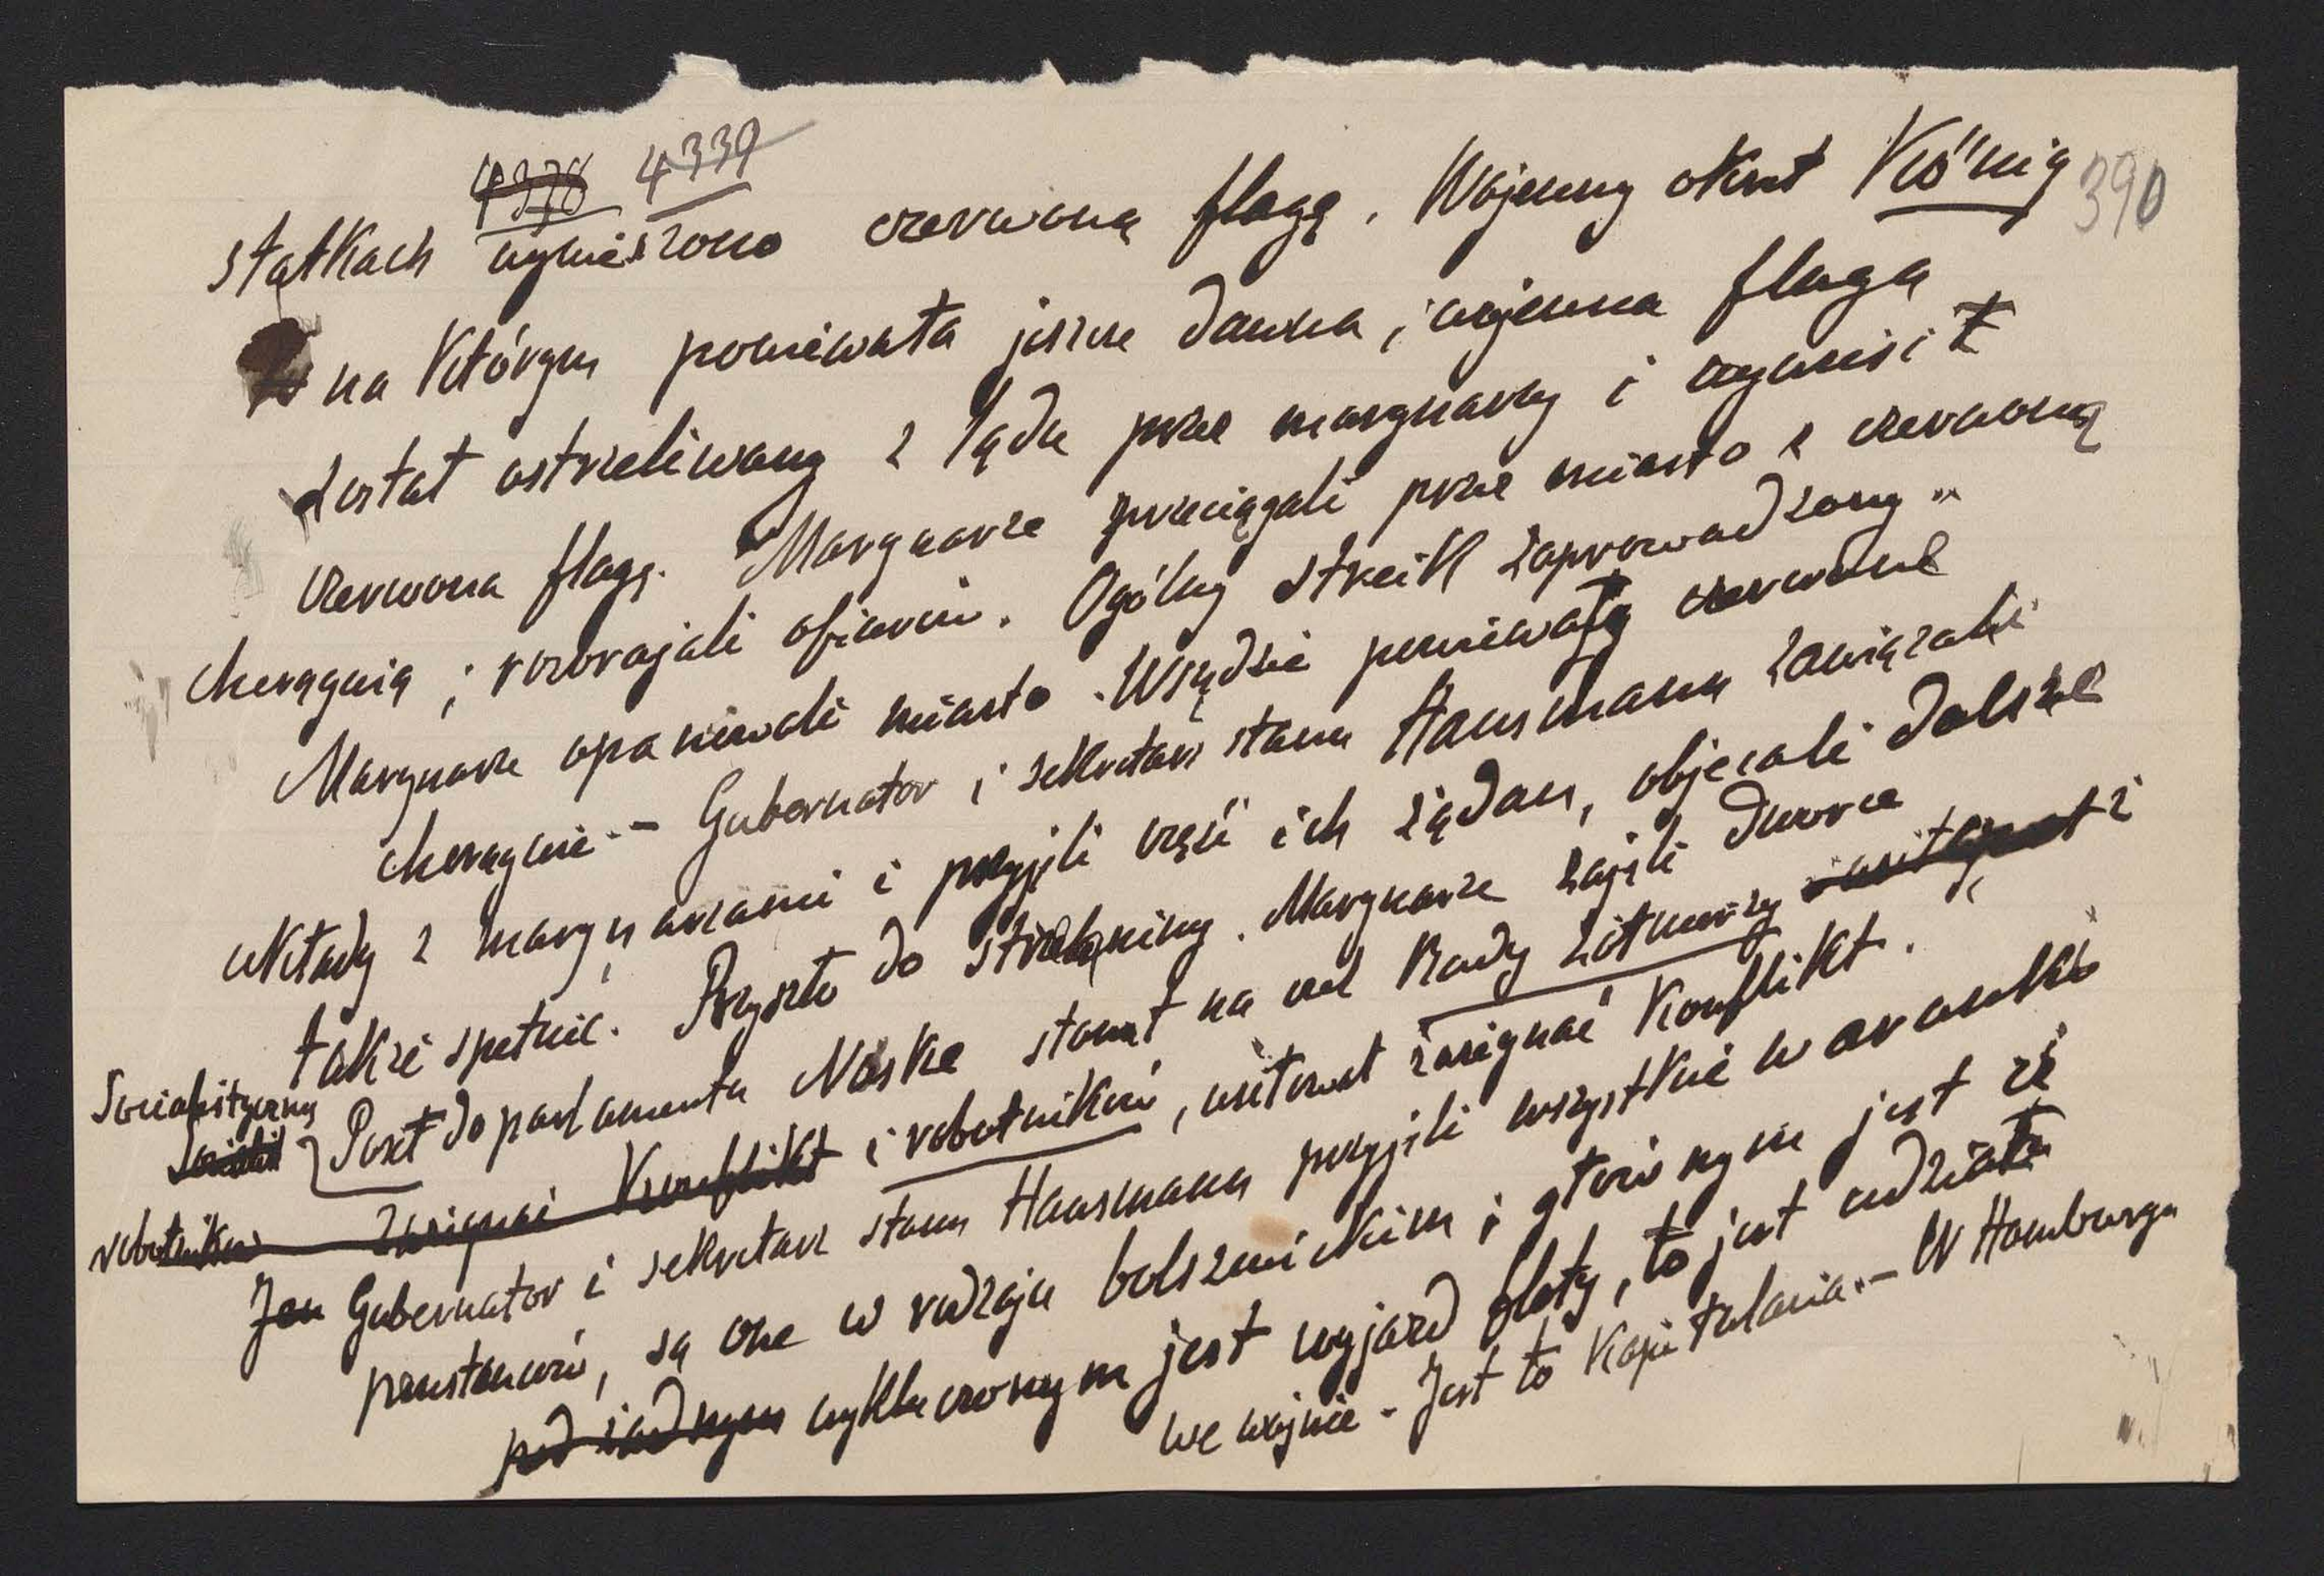 4338 4339
390
statkach wywieszono czerwoną flagę. Wojenny okręt König
na którym powiewała jeszcze dawna, wojenna flaga
został ostrzeliwany z lądu przez marynarzy i wywiesił
czerwona flagę. Marynarze przeciągali przez miasto z czerwoną
chorągwią i rozbrajali oficerów. Ogólny streik zaprowadzony"
Marynarze opanowali miasto. Wszędzie powiewały czerwone
chorągwie. – Gubernator i sekretarz stanu Hausmann zawiązali
układy z marynarzami i przyjęli część ich żądań, objecali dalsze
także spełnić. Przyszło do strzelaniny. Marynarze zajęli dworce
Socialistyczny
Socialist Poseł do parlamentu Noske stanął na czele Rady żołnierzy i
robotników zażegnać Konflikt i robotników, usiłował zażegnać Konflikt.
Jen Gubernator i sekretarz stanu Hausmann przyjęli wszystkie warunki
powstańców, są one w rodzaju bolszewickim i głównym jest że
pod żadnym wykluczonym jest wyjazd floty, to jest udziału
we wojnie – Jest to Kapitulacia. – W Hamburgu